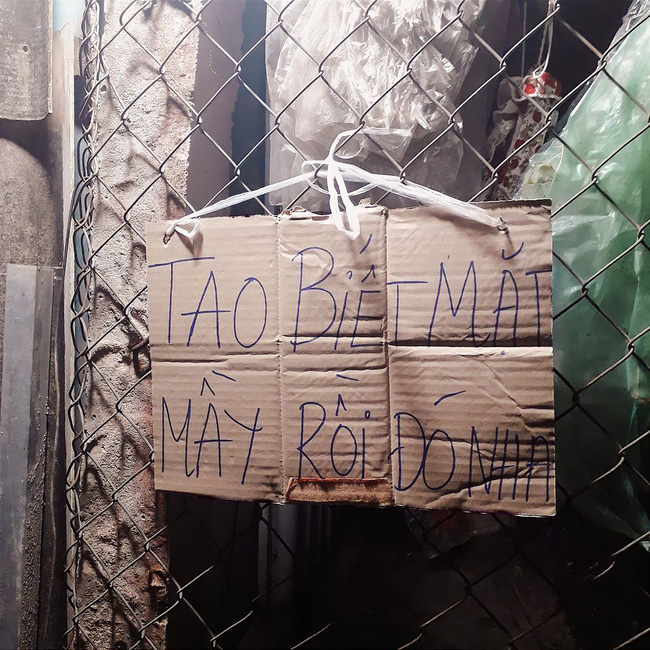 TAO BIẾT MẶT
MẦY RỒI ĐÓ NHA